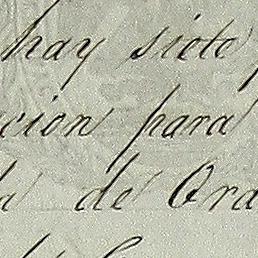 hay siete
cion para
de Ora